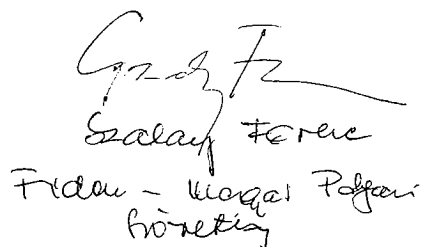 Szalay Ferenc
Fidesz - Magyar Polgári
Szövetség